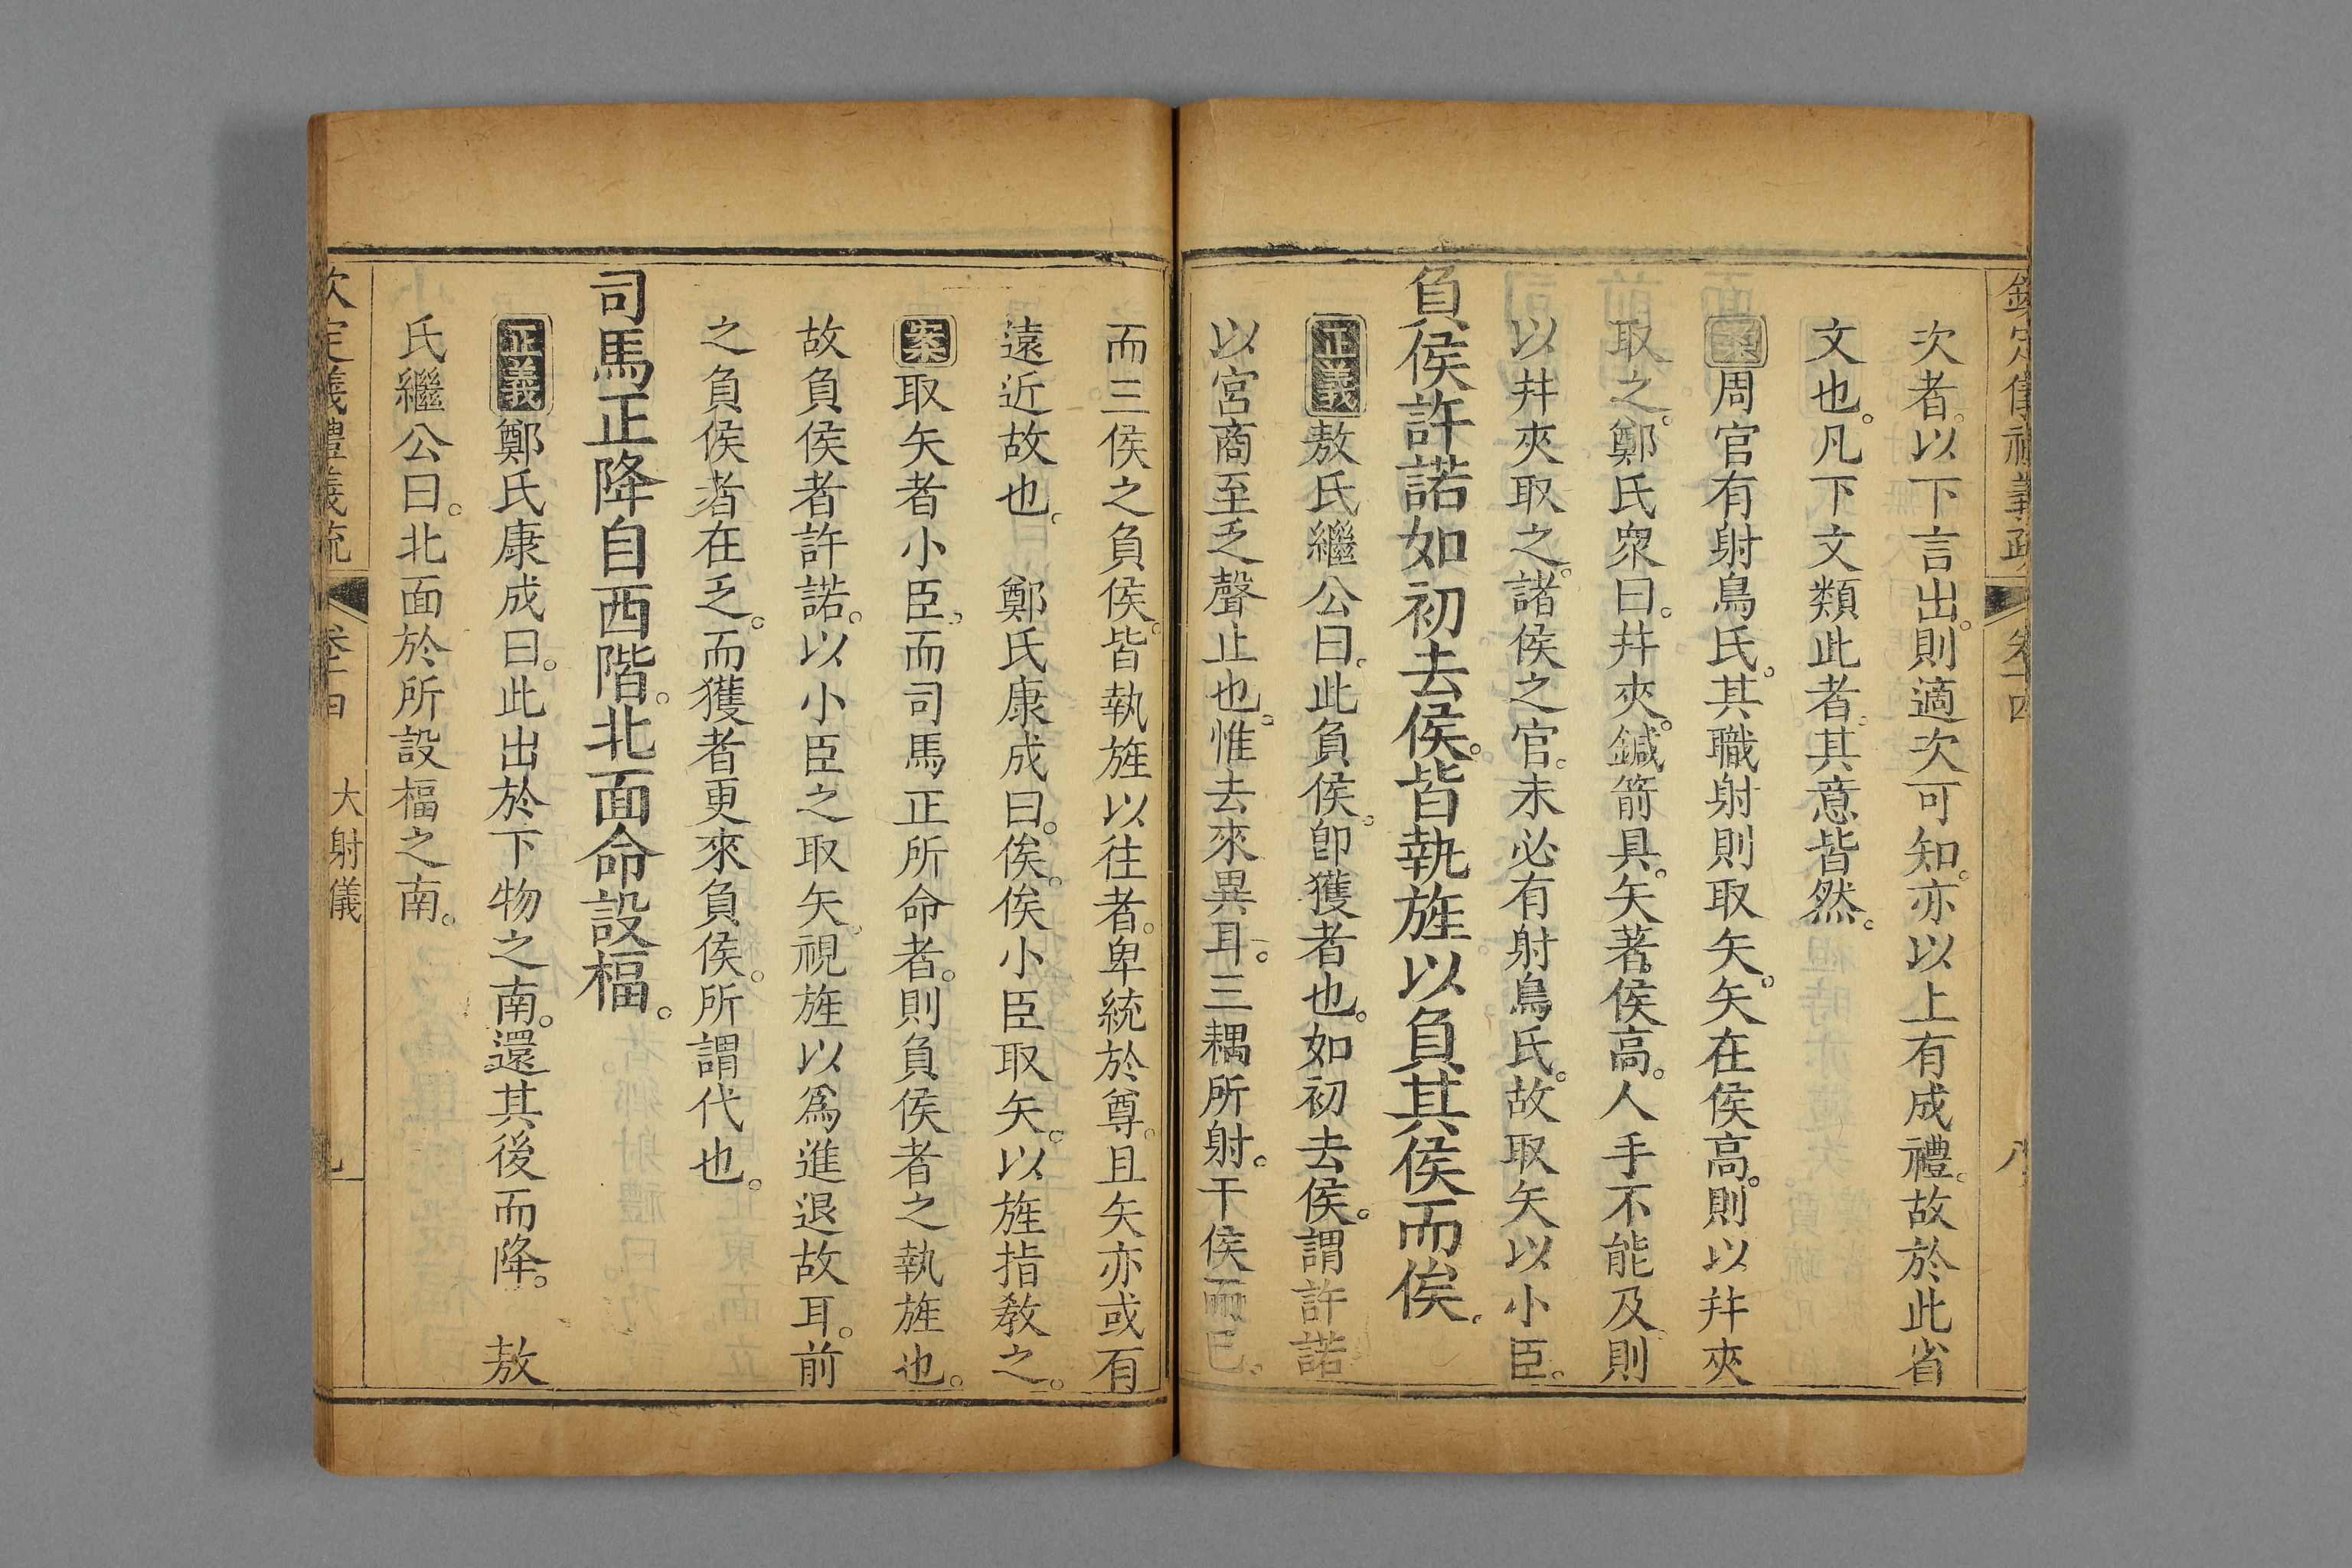 欽定儀禮義疏 卷十四 八
次者。以下言出。則適次可知。亦以上有成禮。故於此省
文也。凡下文類此者。其意皆然。
案周官有射鳥氏。其職射則取矢。矢在侯高。則以幷夾
取之。鄭氏衆曰。幷夾。鍼箭具。矢著侯高。人手不能及。則
以幷夾取之。諸侯之官。未必有射鳥氏。故取矢以小臣。
負侯許諾如初去侯。皆執旌以負其侯而俟。
正義敖氏繼公曰。此負侯。卽獲者也。如初去侯。謂許諾
以宮商至乏聲止也。惟去來異耳。三耦所射。干侯而已。
而三侯之負侯。皆執旌以往者。卑統於尊。且矢亦或有
遠近故也。 鄭氏康成曰。俟。俟小臣取矢。以旌指教之。
案取矢者小臣。而司馬正所命者。則負侯者之執旌也。
故負侯者許諾。以小臣之取矢。視旌以爲進退故耳。前
之負侯者在乏。而獲者更來負侯。所謂代也。
司馬正降自西階。北面命設楅。
正義鄭氏康成曰。此出於下物之南。還其後而降。 敖
氏繼公曰。北面於所設楅之南。
欽定儀禮義疏 卷十四 大射儀 九